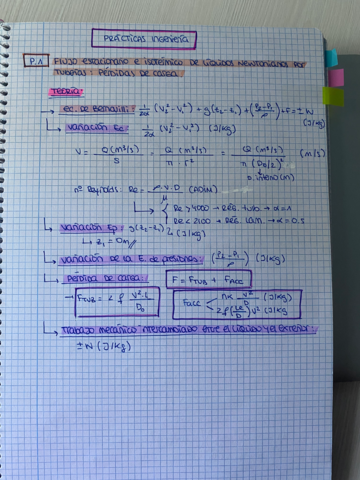 PRÁCTICAS INGENIERÍA
P.1 FLUJO ESTACIONARIO E ISOTÉRMICO DE LÍQUIDOS NEWTONIANOS POR
TUBERÍAS: PÉRDIDAS DE CARGA.
TEORÍA:
→ EC. DE BERNOUILLI: 1/2α (V₂² - V₁²) + g(z₂ - z₁) + (P₂-P₁/ρ) + F = ± W (J/kg)
→ VARIACIÓN Ec: 1/2α (V₂² - V₁²) (J/kg)
V = Q (m³/s) / S = Q (m³/s) / π · r² = Q (m³/s) / π (D₀/2)² (m/s)
nº Reynolds: Re = ρ · V · D / μ (ADIM)
Re > 4000 → RÉG. turb. → α = 1
Re < 2100 → RÉG. LAM. → α = 0,5
→ VARIACIÓN Ep: g(z₂ - z₁) (J/kg)
↳ z₁ = 0m
→ VARIACIÓN DE LA E. DE PRESIONES: (P₂ - P₁/ρ) (J/kg)
→ PÉRDIDA DE CARGA: F = F_TUB + F_ACC
→ F_TUB = 2 f V² · L / D₀
F_ACC nK V²/2 (J/kg)
2 f (LE/D) V² (J/kg)
→ TRABAJO MECÁNICO INTERCAMBIADO ENTRE EL LÍQUIDO Y EL EXTERIOR:
± W (J/kg)